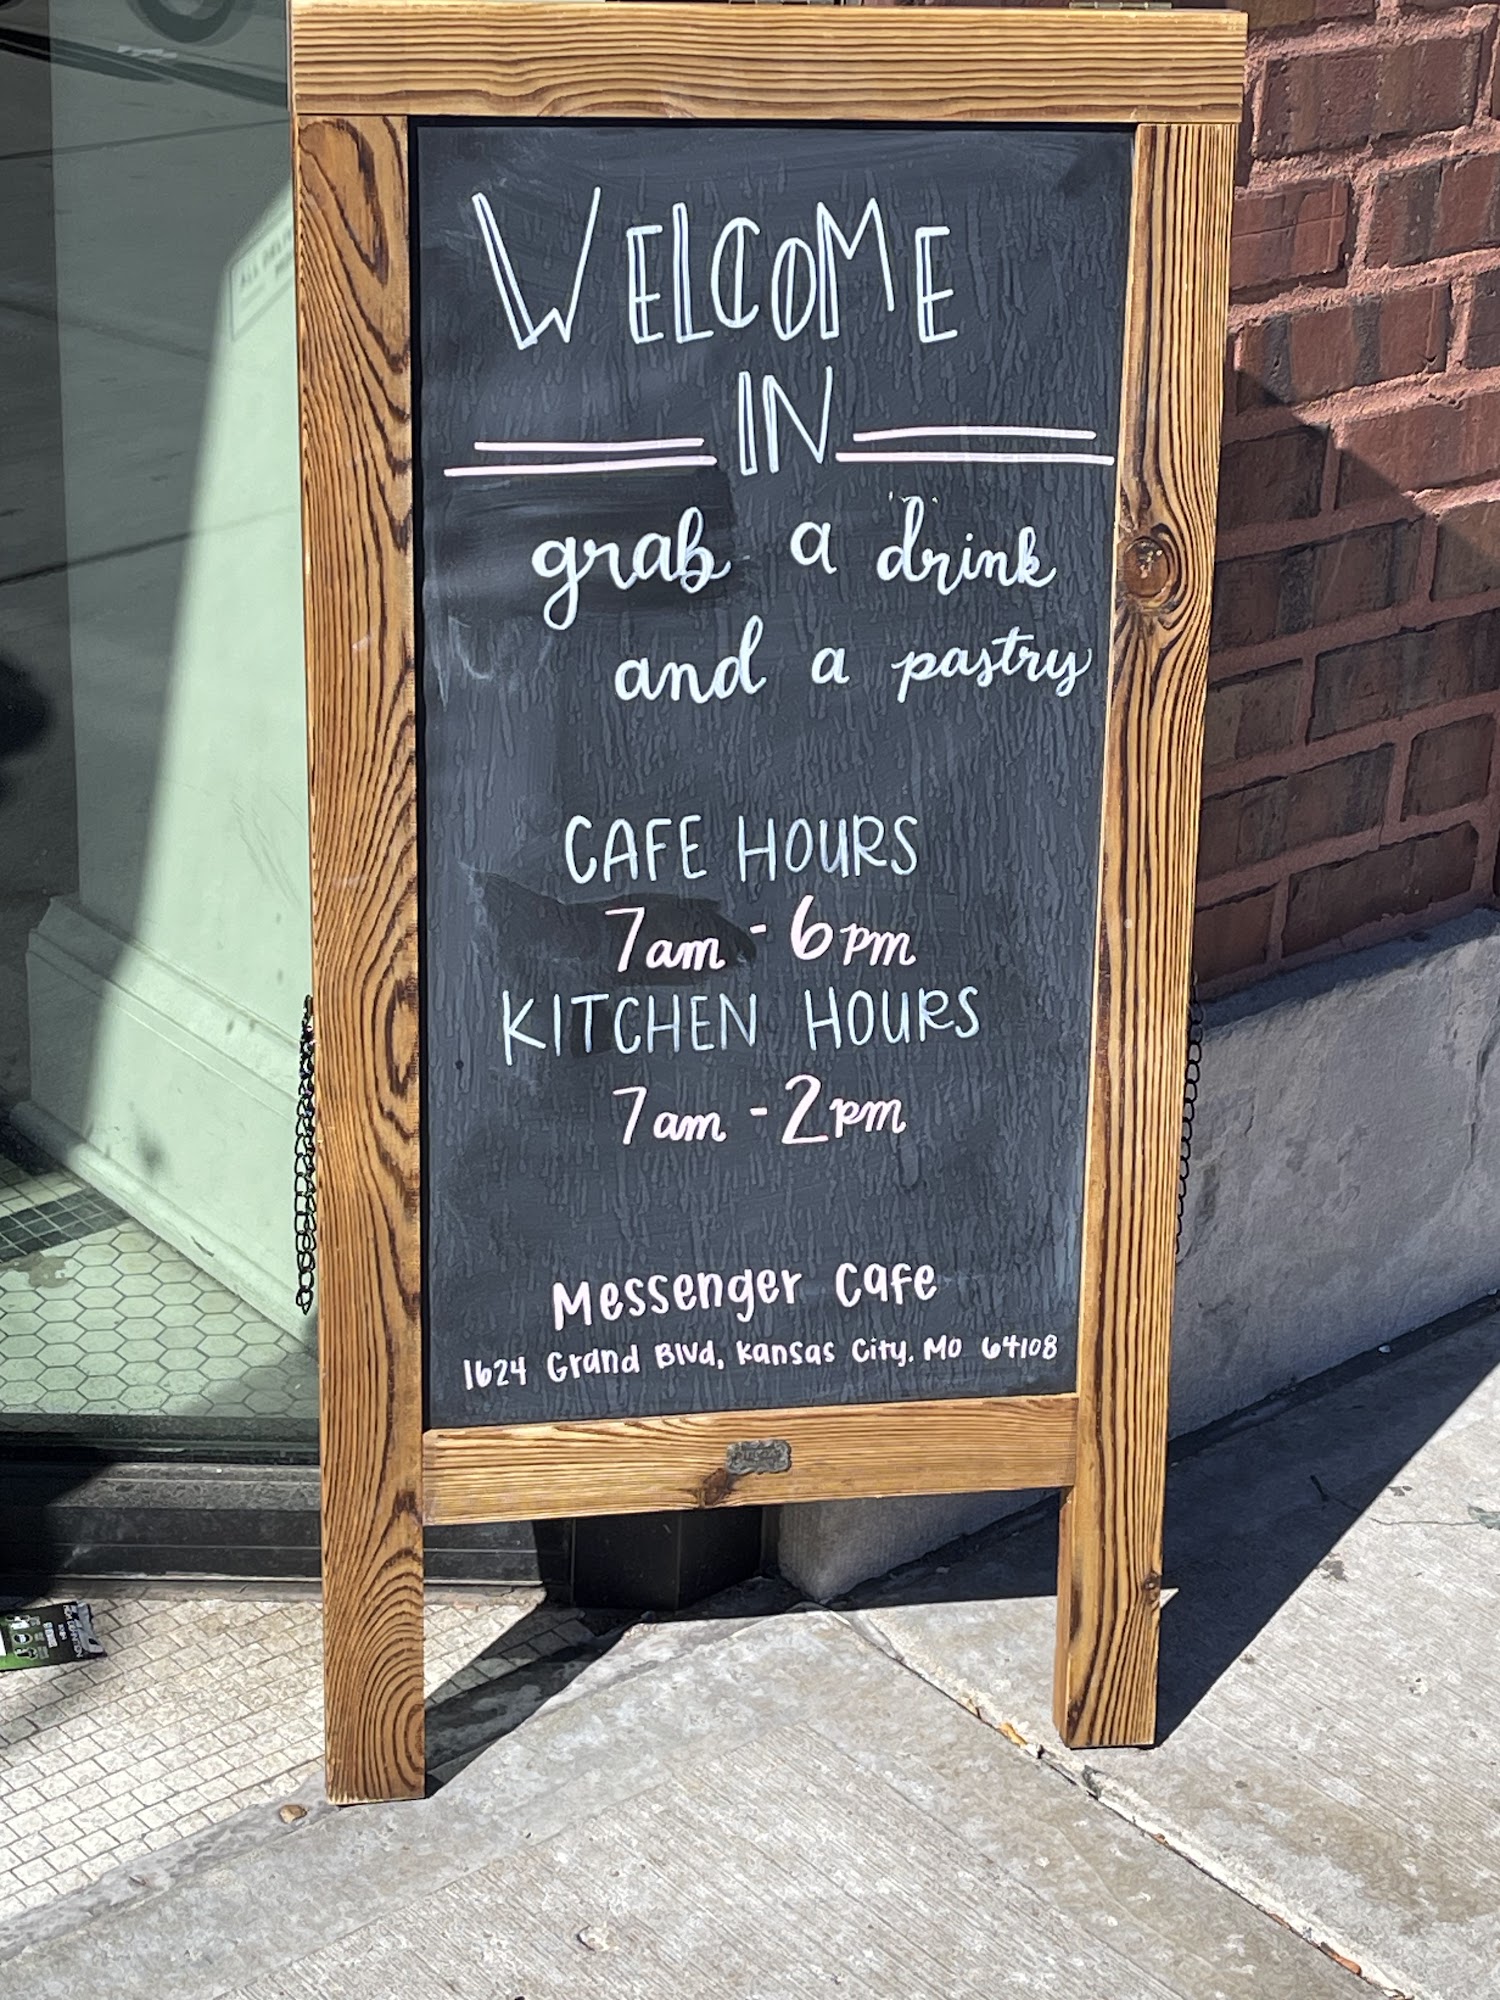 WELCOME
IN
grab a drink
and a pastry
CAFE HOURS
7am - 6pm
KITCHEN HOURS
7am - 2pm
Messenger Cafe
1624 Grand Blvd, Kansas City. MO 64108